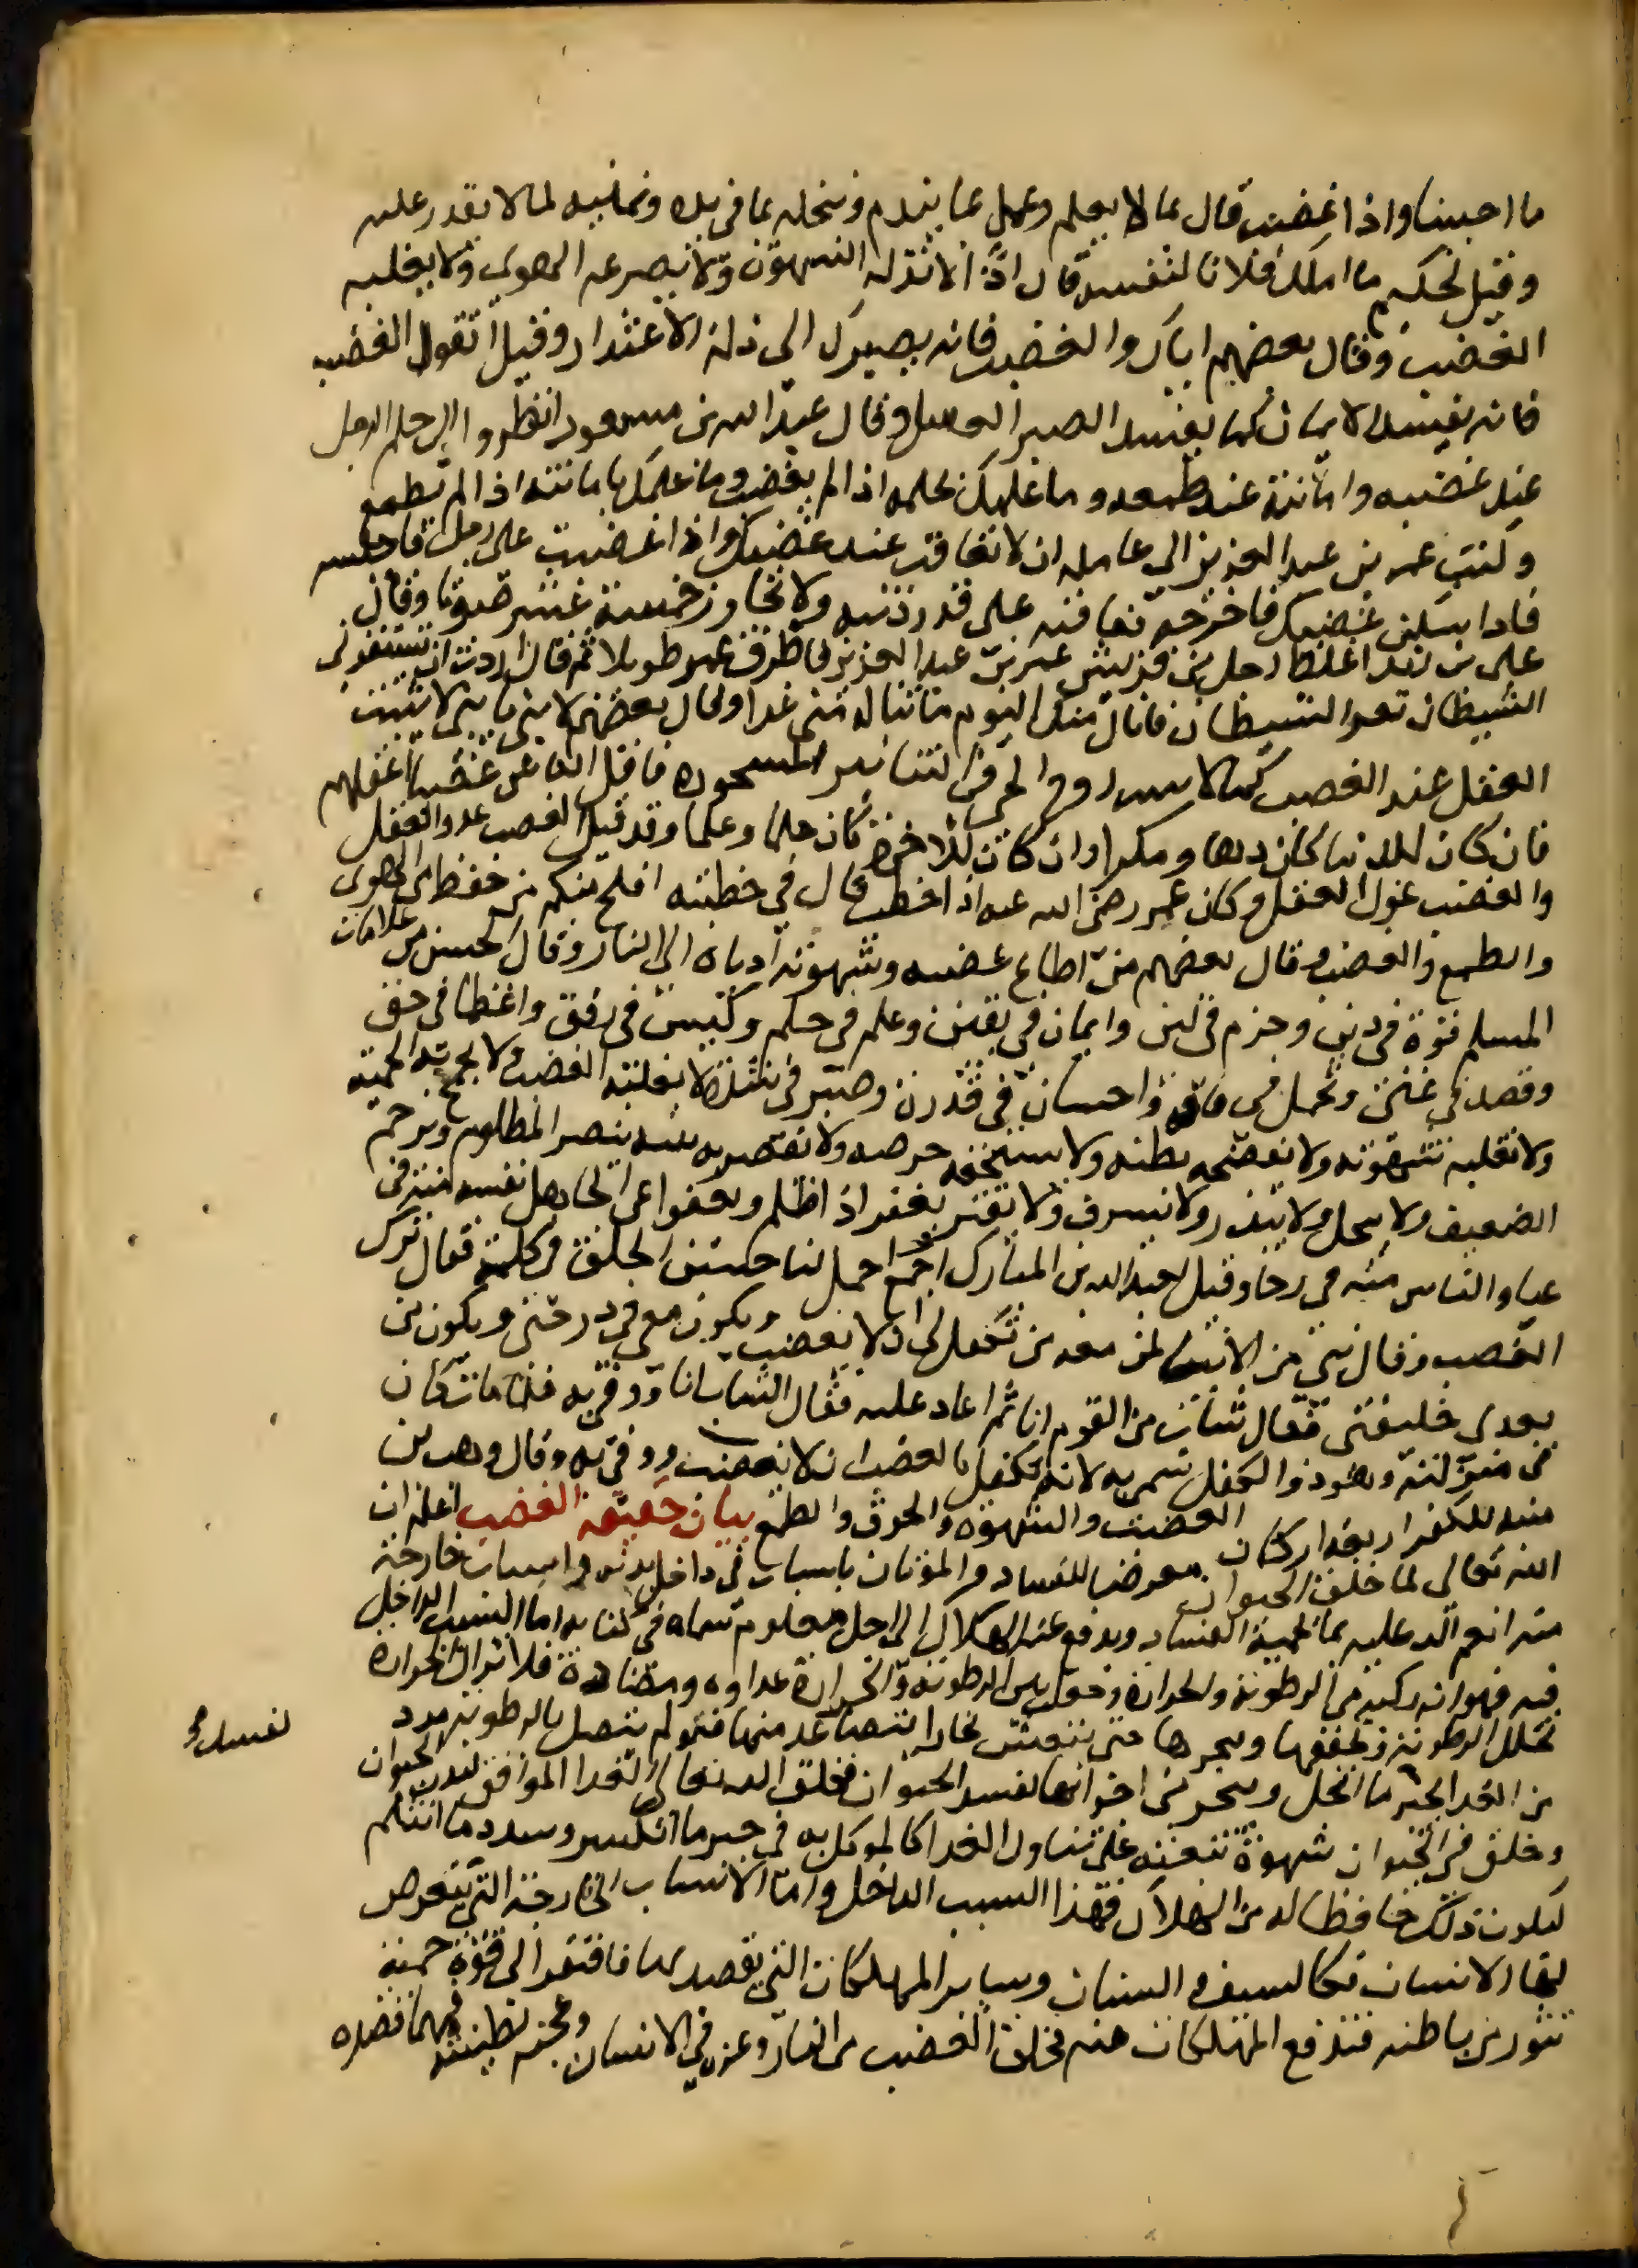 ما احببنا واذا غضب قال بما لا يعلم وعمل بما يندم ونبخله بما في يده ونمنيه لما لا يقدر عليه
وقيل لحكيم ما املك فلانا لنفسه قال اذا لا تذله الشهوة ولا يصرعه الهوى ولا يغلبه
الغضب وقال بعضهم اياك والغضب فانه يصيرك الى ذلة الاعتذار وقيل اتقوا الغضب
فانه يفسد الايمان كما يفسد الصبر العسل وقال عبد الله بن مسعود انظروا الى حلم الرجل
عند غضبه وامانته عند طمعه وما علمك بحلمه اذا لم يغضب وما علمك بامانته اذا لم يطمع
وكتب عمر بن عبد العزيز الى عامله ان لا تعاقب عند غضبك واذا غضبت على رجل فاحبسه
فاذا سكن غضبك فاخرجه فعاقبه على قدر ذنبه ولا تجاوز خمسة عشر صوتا وقال
على بن زيد اغلظ رجل من قريش لعمر بن عبد العزيز فاطرق عمر طويلا ثم قال اردت ان يستفزني
الشيطان بعز الشيطان فانال منك اليوم ما تناله مني غدا وقال بعضهم لابنه يا بني لا يثبت
العقل عند الغضب كما لا يثبت روح الحي في التنانير المسجورة فاقل الناس غضبا اعقلهم
فان كان للدنيا كان دهاء ومكرا وان كان للاخرة كان حلما وعلما وقد قيل الغضب عدو العقل
والغضب غول العقل وكان عمر رضى الله عنه اذا خطب قال في خطبته افلح منكم من حفظ من الهوى
والطمع والغضب وقال بعضهم من اطاع غضبه وشهوته اداه الى النار وقال الحسن من علامات
المسلم قوة في دين وحزم في لين وايمان في يقين وعلم في حلم وكيس في رفق واعطا في حق
وقصد في غنى وتجمل في فاقة واحسان في قدرة وصبر في شدة لا يغلبه الغضب ولا تجمح به الحمية
ولا تغلبه شهوته ولا تفضحه بطنه ولا يستخفه حرصه ولا تقصر به نيته ينصر المظلوم ويرحم
الضعيف ولا يبخل ولا يبذر ولا يسرف ولا يقتر يغفر اذا ظلم ويعفوا عن الجاهل نفسه منه في
عناء والناس منه في رخا وقيل لعبد الله بن المبارك اجمل لنا حسن الخلق في كلمة فقال ترك
الغضب وقال نبي من الانبياء لمن معه من تكفل لي ان لا يغضب ويكون معي في درجتي ويكون من
بعدي خليفتي فقال شاب من القوم انا ثم اعاد عليه فقال الشاب انا ووفى به فلما مات كان
في منزلته وهو ذو الكفل سمي به لانه تكفل بالغضب ان لا يغضب ووفى به وقال وهب بن
منبه للكفر اربعة اركان الغضب والشهوة والخرق والطمع بيان حقيقة الغضب اعلم ان
الله تعالى لما خلق الحيوان معرضا للفساد والموتان باسباب في داخل بدنه واسباب خارجة
منه انعم الله عليه بما يحميه الفساد ويدفع عنه الهلاك الى اجل معلوم سماه في كتابه اما السبب الداخل
فيه فهو انه ركبه من الرطوبة والحرارة وجعل بين الرطوبة والحرارة عداوه ومضادة فلا تزال الحرارة
تحلل الرطوبة وتجففها وتبخرها حتى يتفشى بخارا يتصاعد منها فلو لم يتصل بالرطوبة مدد
من الغذا يجبر ما انحل وتبخر من اجزائها لفسد الحيوان فخلق الله تعالى الغدا الموافق لبدن الحيوان
وخلق في الحيوان شهوة تبعثه على تناول الغدا كالموكل به في جبر ما انكسر وسدد ما انثلم
ليكون ذلك حافظا له من الهلاك فهذا السبب الداخل واما الاسباب الخارجة التي يتعرض
لها الانسان فكالسيف والسنان وساير المهلكات التي يقصد بها فافتقر الى قوة حمية
تثور من باطنه فتدفع المهلكات عنه فخلق الغضب من النار وغرزه في الانسان وعجنه بطينته فمهما قصده